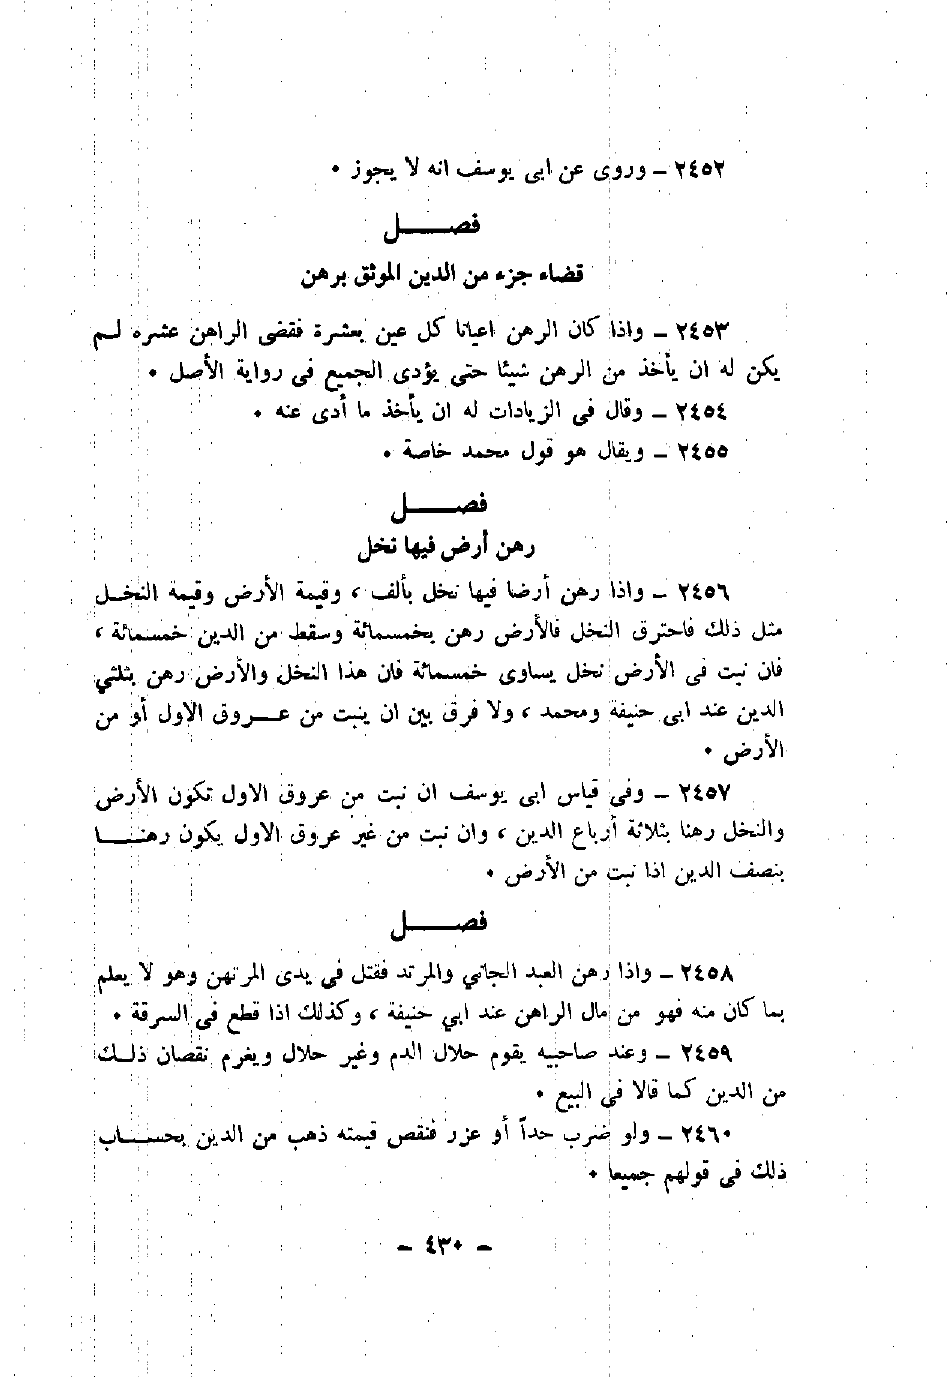 ٢٤٥٢ ـ وروى عن ابى يوسف انه لا يجوز ٠
فصـــــل
قضاء جزء من الدين الموثق برهن
٢٤٥٣ ـ واذا كان الرهن اعيانا كل عين بعشرة فقضى الراهن عشره لـم
يكن له ان يأخذ من الرهن شيئا حتى يؤدى الجميع فى رواية الأصل ٠
٢٤٥٤ ـ وقال فى الزيادات له ان يأخذ ما أدى عنه ٠
٢٤٥٥ ـ ويقال هو قول محمد خاصة ٠
فصـــــل
رهن أرض فيها نخل
٢٤٥٦ ـ واذا رهن أرضا فيها نخل بألف ، وقيمة الأرض وقيمة النخـل
مثل ذلك فاحترق النخل فالأرض رهن بخمسمائة وسقط من الدين خمسمائة ،
فان نبت فى الأرض نخل يساوى خمسمائة فان هذا النخل والأرض رهن بثلثي
الدين عند ابى حنيفة ومحمد ، ولا فرق بين ان ينبت من عـــروق الاول أو من
الأرض ٠
٢٤٥٧ ـ وفى قياس ابى يوسف ان نبت من عروق الاول تكون الأرض
والنخل رهنا بثلاثة أرباع الدين ، وان نبت من غير عروق الاول يكون رهنـــا
بنصف الدين اذا نبت من الأرض ٠
فصـــــل
٢٤٥٨ ـ واذا رهن العبد الجاني والمرتد فقتل في يدى المرتهن وهو لا يعلم
بما كان منه فهو من مال الراهن عند ابي حنيفة ، وكذلك اذا قطع فى السرقة ٠
٢٤٥٩ ـ وعند صاحبيه يقوم حلال الدم وغير حلال ويغرم نقصان ذلـك
من الدين كما قالا فى البيع ٠
٢٤٦٠ ـ ولو ضرب حداً أو عزر فنقص قيمته ذهب من الدين بحســاب
ذلك فى قولهم جميعا ٠
ـ ٤٣٠ ـ